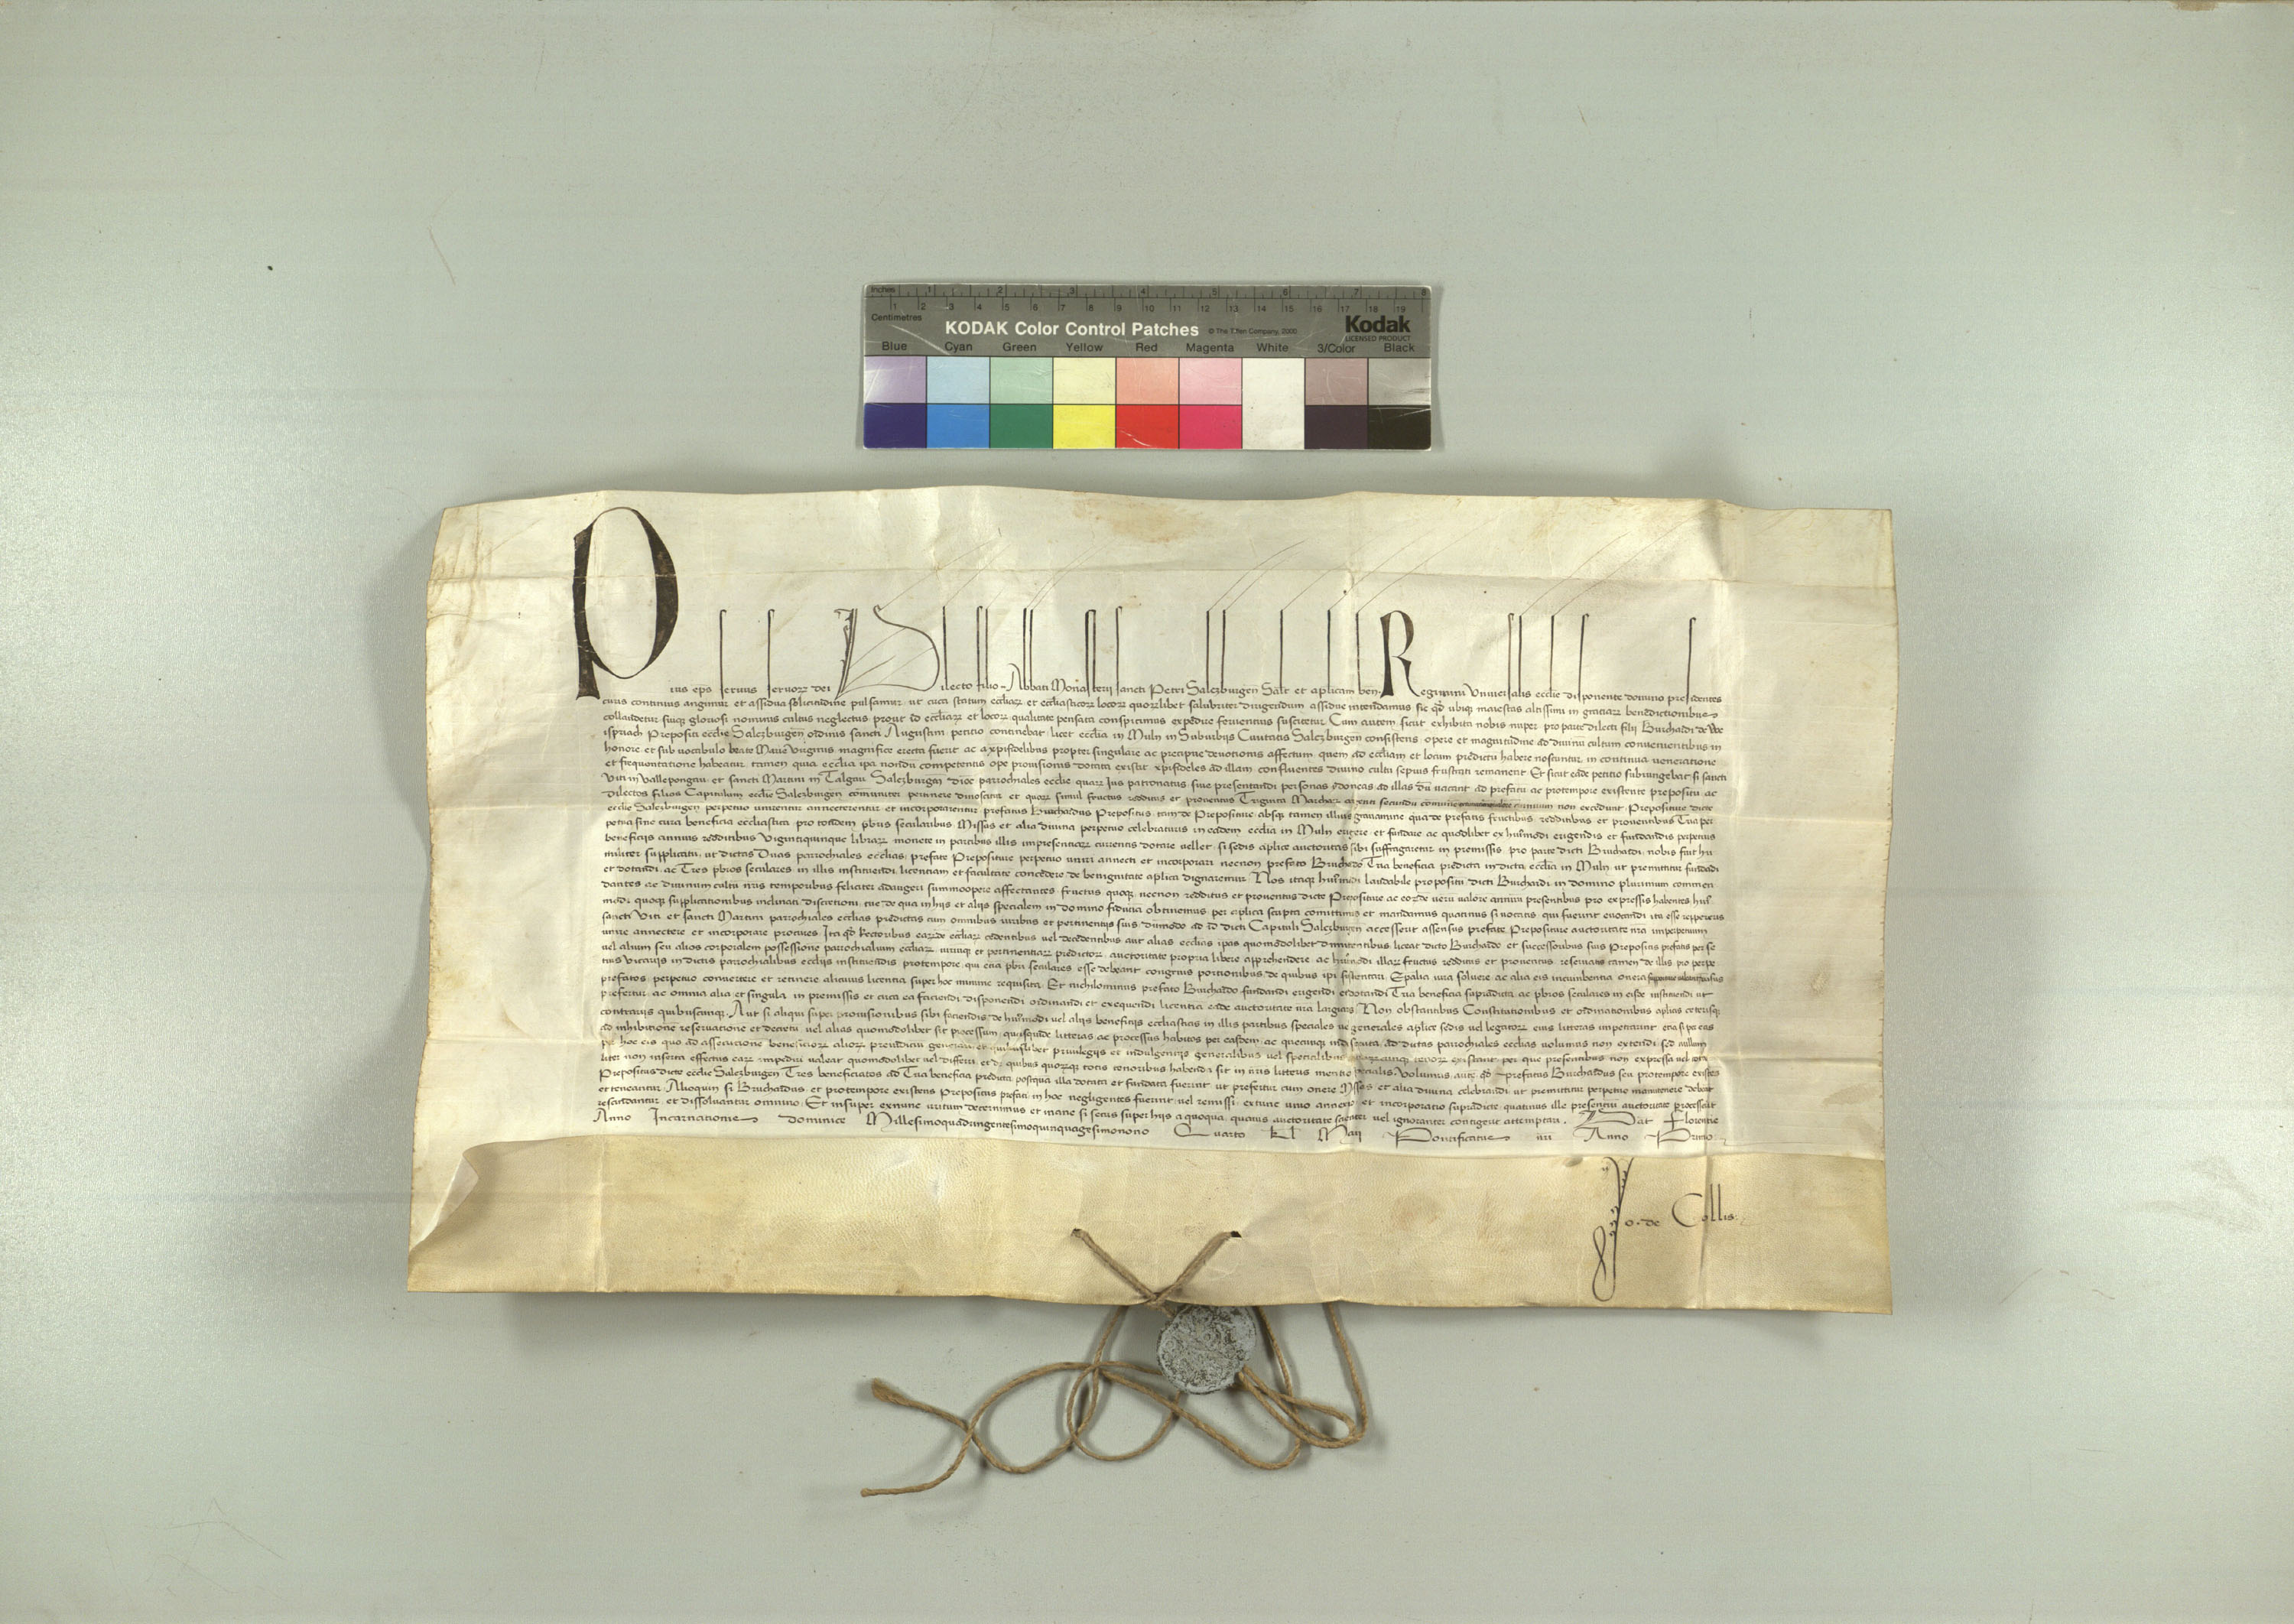 Inches 1 2 3 4 5 6 7 8
Centimetres 1 2 3 4 5 6 7 8 9 10 11 12 13 14 15 16 17 18 19
KODAK Color Control Patches © The Tiffen Company, 2000 Kodak
LICENSED PRODUCT
Blue Cyan Green Yellow Red Magenta White 3/Color Black
Pius eps servus servorꝝ dei Dilecto filio Abbati Monasterii sancti Petri Salczburgeñ Salt et aplicam beñ. Regimini Universalis ecclie disponente domino presidentes
curis continuis angimur et assidua solicitudine pulsamur ut circa statum ecclīaꝝ et ecclīasticoꝝ locoꝝ quorꝝlibet salubriter dirigendum assidue intendamus sic qđ ubiqꝫ maiestas altissimi in graciaꝝ benedictionibus
collaudetur suiqꝫ gloriosi nominis cultus neglectus prout id ecclīaꝝ et locoꝝ qualitate pensata conspicimus expedire ferventius suscitetur Cum autem sicut exhibita nobis nuper pro parte dilecti filii Burchardi de We
ispriach Prepositi ecclie Salczburgeñ ordinis sancti Augustini petitio continebat licet ecclīa in Muln in Suburbijs Civitatis Salczburgeñ consistens opere et magnitudine ad divinū cultum convenientibus in
honore et sub vocabulo beate Marie virginis magnifice erecta fuerit ac a xpifidelibus propter singulare ac precipue devotionis affectum quem ad ecclīam et locum predictū habere noscuntur in continua veneratione
et frequentatione habeatur tamen quia ecclīa ipa nondū competentis ope provisionis dotata existit xpifideles ad illam confluentes divino cultu sepius frustrati remanent Et sicut eadē petitio subiungebat si sancti
Viti in Vallepongau et sancti Martini in Talgau Salczburgeñ dioc parrochiales ecclie quarꝝ Ius patronatus sive presentandi personas ydoneas ad illas dū vacant ad prefatū ac protempore existente prepositū ac
dilectos filios Capitulum ecclie Salczburgeñ comūniter pertinere dinoscitur et quarꝝ simul fructus redditus et proventus Triginta Marcharꝝ argenti secundū comune annuum non excedunt Prepositure dicte
ecclie Salczburgeñ perpetuo unirentur annecterentur et incorporarentur prefatus Burchardus Prepositus tam de Prepositure absqꝫ tamen illius gravamine qua de prefatis fructibus redditibus et proventibus Tria per
petua sine cura beneficia ecclīastica pro totidem pbris secularibus Missas et alia divina perpetuo celebraturis in eadem ecclīa in Muln erigere et fundare ac quodlibet ex huiꝰmodi erigendis et fundandis perpetuis
beneficijs annuis redditibus Vigintiquinque librarꝝ monete in partibus illis impresentiarꝝ currentis dotare vellet si sedis aplice auctoritas sibi suffragaretur in premissis pro parte dicti Burchardi nobis fuit hu
militer supplicatū ut dictas Duas parrochiales ecclīas prefate Prepositure perpetuo uniri annecti et incorporari necnon prefato Burchardo Tria beneficia predicta in dicta ecclīa in Muln ut premittitur fundādi
et dotandi ac Tres pbros seculares in illis instituendi licentiam et facultatē concedere de benignitate aplica dignaremur Nos itaqꝫ huiꝰmodi laudabile propositū dicti Burchardi in domino plurimum commen
dantes ac divinum cultū nris temporibus feliciter adaugeri summoopere affectantes fructus quoqꝫ necnon redditus et proventus dicte Prepositure ac eorꝝdē verū valorē annuū presentibus pro expressis habentes huiꝰ
modi quoqꝫ supplicationibus inclinati discretioni tue de qua in hijs et alijs specialem in domino fiduciā obtinemus per aplica scripta comittimus et mandamus quatinus si vocatis qui fuerint evocandi ita esse reppereris
sancti Viti et sancti Martini parrochiales ecclīas predictas cum omnibus iuribus et pertinentijs suis dūmodo ad id dicti Capituli Salczburgeñ accesserit assensus prefate Prepositure auctoritate nra imperpetuum
unire annectere et incorporare procures Ita qđ Rectoribus earꝝdē ecclīarꝝ cedentibus vel decedentibus aut alias ecclīas ipas quomodolibet dimittentibus liceat dicto Burchardo et successoribus suis Prepositis prefatis per se
vel alium seu alios corporalem possessionē parrochialium ecclīarꝝ iuriūqꝫ et pertinentiarꝝ predictorꝝ auctoritate propria libere apprehendere ac huiꝰmodi illarꝝ fructus redditus et proventus reservatis tamen de illis pro perpe
tuis Vicarijs in dictis parrochialibus ecclīijs instituendis protempore qui etiā pbri seculares esse debeant congruis portionibus de quibus ipi sustentari Epalia iura solvere ac alia eis incumbentia onera
prefatos perpetuo convertere et retinere alicuius licentia super hoc minime requisita Et nichilominus prefato Burchardo fundandi erigendi et dotandi Tria beneficia supradicta ac pbros seculares in eisdē instituendi ut
prefertur ac omnia alia et singula in premissis et circa ea faciendi disponendi ordinandi et exequendi licentiā eadē auctoritate nra largiaris Non obstantibus Constitutionibus et ordinationibus aplicis ceterisqꝫ
contrarijs quibuscunqꝫ Aut si aliqui super provisionibus sibi faciendis de huiꝰmodi vel alijs beneficijs ecclīasticis in illis partibus speciales vel generales aplice sedis vel legatorꝝ eius litteras impetrarint etiā si per eas
ad inhibitionē reservationē et decretū vel alias quomodolibet sit processum quasquidē litteras ac processus habitos per easdem ac quecunqꝫ inde secuta ad dictas parrochiales ecclīas volumus non extendi sed nullum
per hoc eis quo ad assecutionē beneficiorꝝ aliorꝝ preiudiciū generari et quibuslibet privilegijs et indulgencijs generalibus vel specialibus quorꝝcunqꝫ tenorꝝ existant per que presentibus non expressa vel tota
liter non inserta effectus earꝝ impediri valeat quomodolibet vel differri et de quibus quorꝝqꝫ totis tenoribus habenda sit in nris litteris mentio specialis Volumus autē qđ prefatus Burchardus seu protempore existēs
Prepositus dicte ecclie Salczburgeñ Tres beneficiatos ad Tria beneficia predicta postquā illa dotata et fundata fuerint ut prefertur cum onere Missas et alia divina celebrandi ut premittitur perpetuo manutenere debeat
et teneantur Alioquin si Burchardus et protempore existens Prepositus prefati in hoc negligentes fuerint vel remissi extunc unio annexio et incorporatio supradicte quatinus ille presentiū auctoritate processerit
rescindantur et dissolvantur omnino Et insuper exnunc irritum decernimus et inane si secus super hijs a quoquā quavis auctoritate scienter vel ignoranter contigerit attemptari. Dat Florentie
Anno Incarnationis dominice Millesimoquadringentesimoquinquagesimonono Quarto kl Maij Pontificatus nri Anno Primo
Jo. de Collis